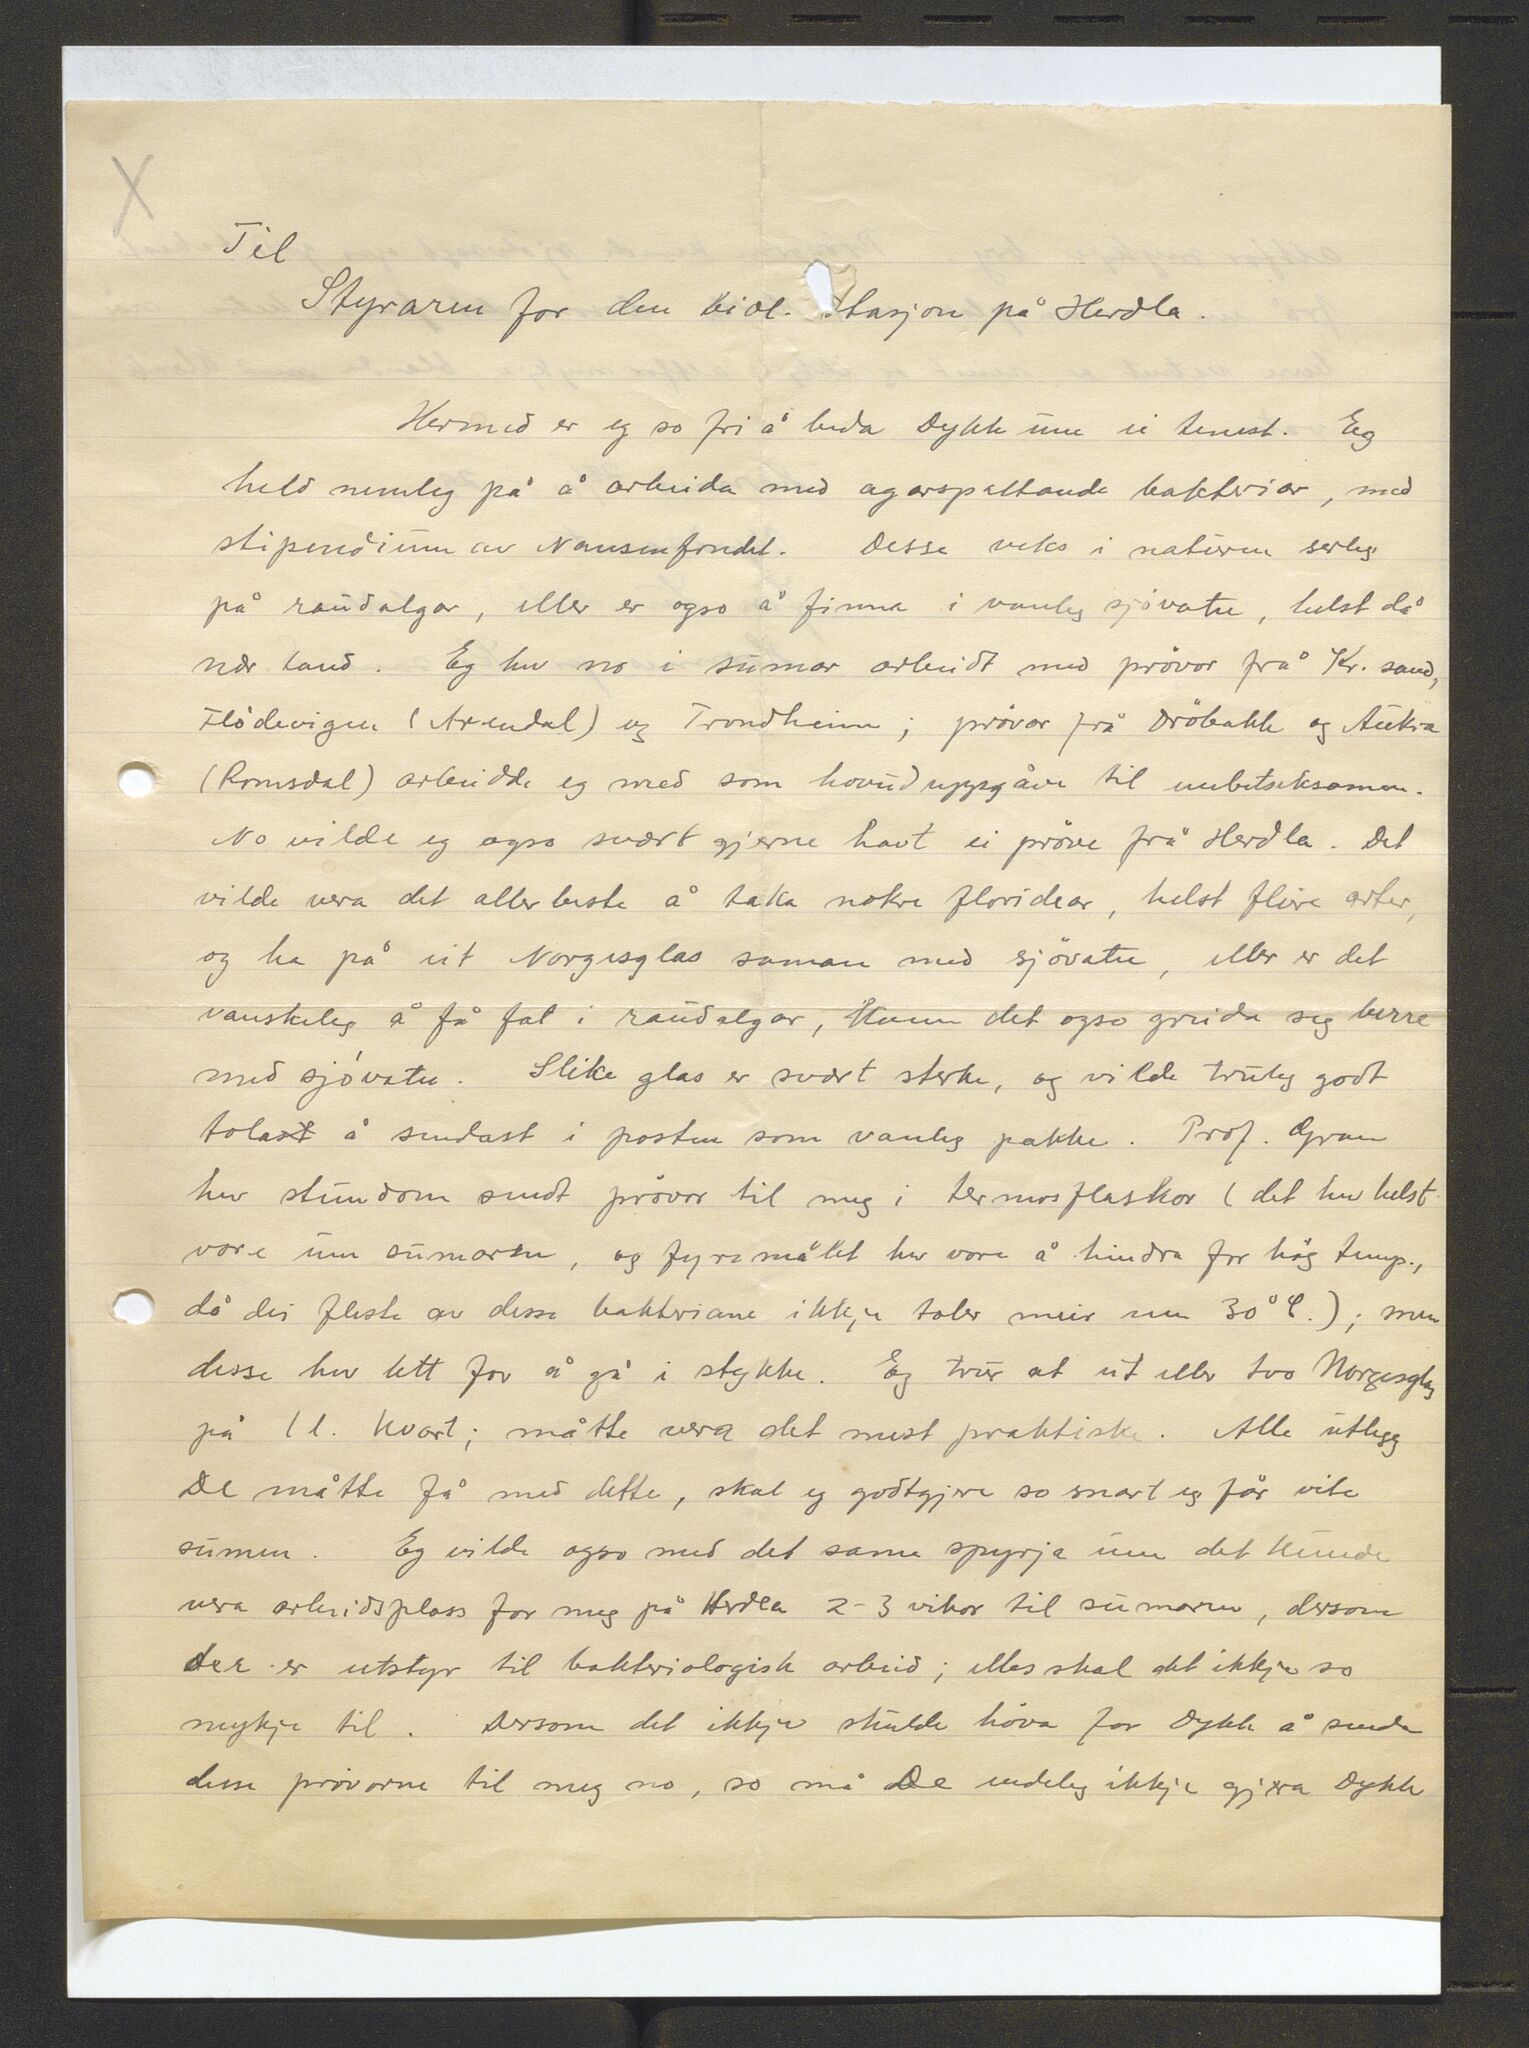 X
Til
Styraren for den biol. Stasjon på Herdla.
Hermed er eg so fri å beda Dykk um ei tenest. Eg
held nemleg på å arbeida med agarspaltande bakteriar, med
stipendium av Nansenfondet. Desse veks i naturen serleg
på raudalgar, eller er ogso å finna i vanleg sjövatn, helst då
nær land. Eg hev no i sumar arbeidt med prövor frå Kr.sand,
Flödevigen (Arendal) og Trondheim; prövor frå Dröbakk og Aukra
(Romsdal) arbeidde eg med som hovuduppgåve til embetseksamen.
No vilde eg ogso svært gjerne havt ei pröve frå Herdla. Det
vilde vera det allerbeste å taka nokre floridear, helst fleire arter,
og ha på eit Norgesglas saman med sjövatn, eller er det
vanskeleg å få fat i raudalgar, kann det ogso greida seg berre
med sjövatn. Slike glas er svært sterke, og vilde truleg godt
tola å sendast i posten som vanleg pakke. Prof. Gran
hev stundom sendt prövor til meg i termosflaskor (det hev helst
vore um sumaren, og fyremålet hev vore å hindra for hög temp.,
då dei fleste av desse bakteriane ikkje toler meir enn 30° C.); men
desse hev lett for å gå i stykke. Eg trur at eit eller two Norgesglas
på 1 l. kvart; måtte vera det mest praktiske. Alle utlegg
De måtte få med dette, skal eg godtgjera so snart eg får vite
sumen. Eg vilde ogso med det same spyrja um det kunde
vera arbeidsplass for meg på Herdla 2-3 vikor til sumaren, dersom
der er utstyr til bakteriologisk arbeid; elles skal det ikkje so
mykje til. Dersom det ikkje skulde höva for Dykk å senda
desse prövorne til meg no, so må De endeleg ikkje gjera Dykk